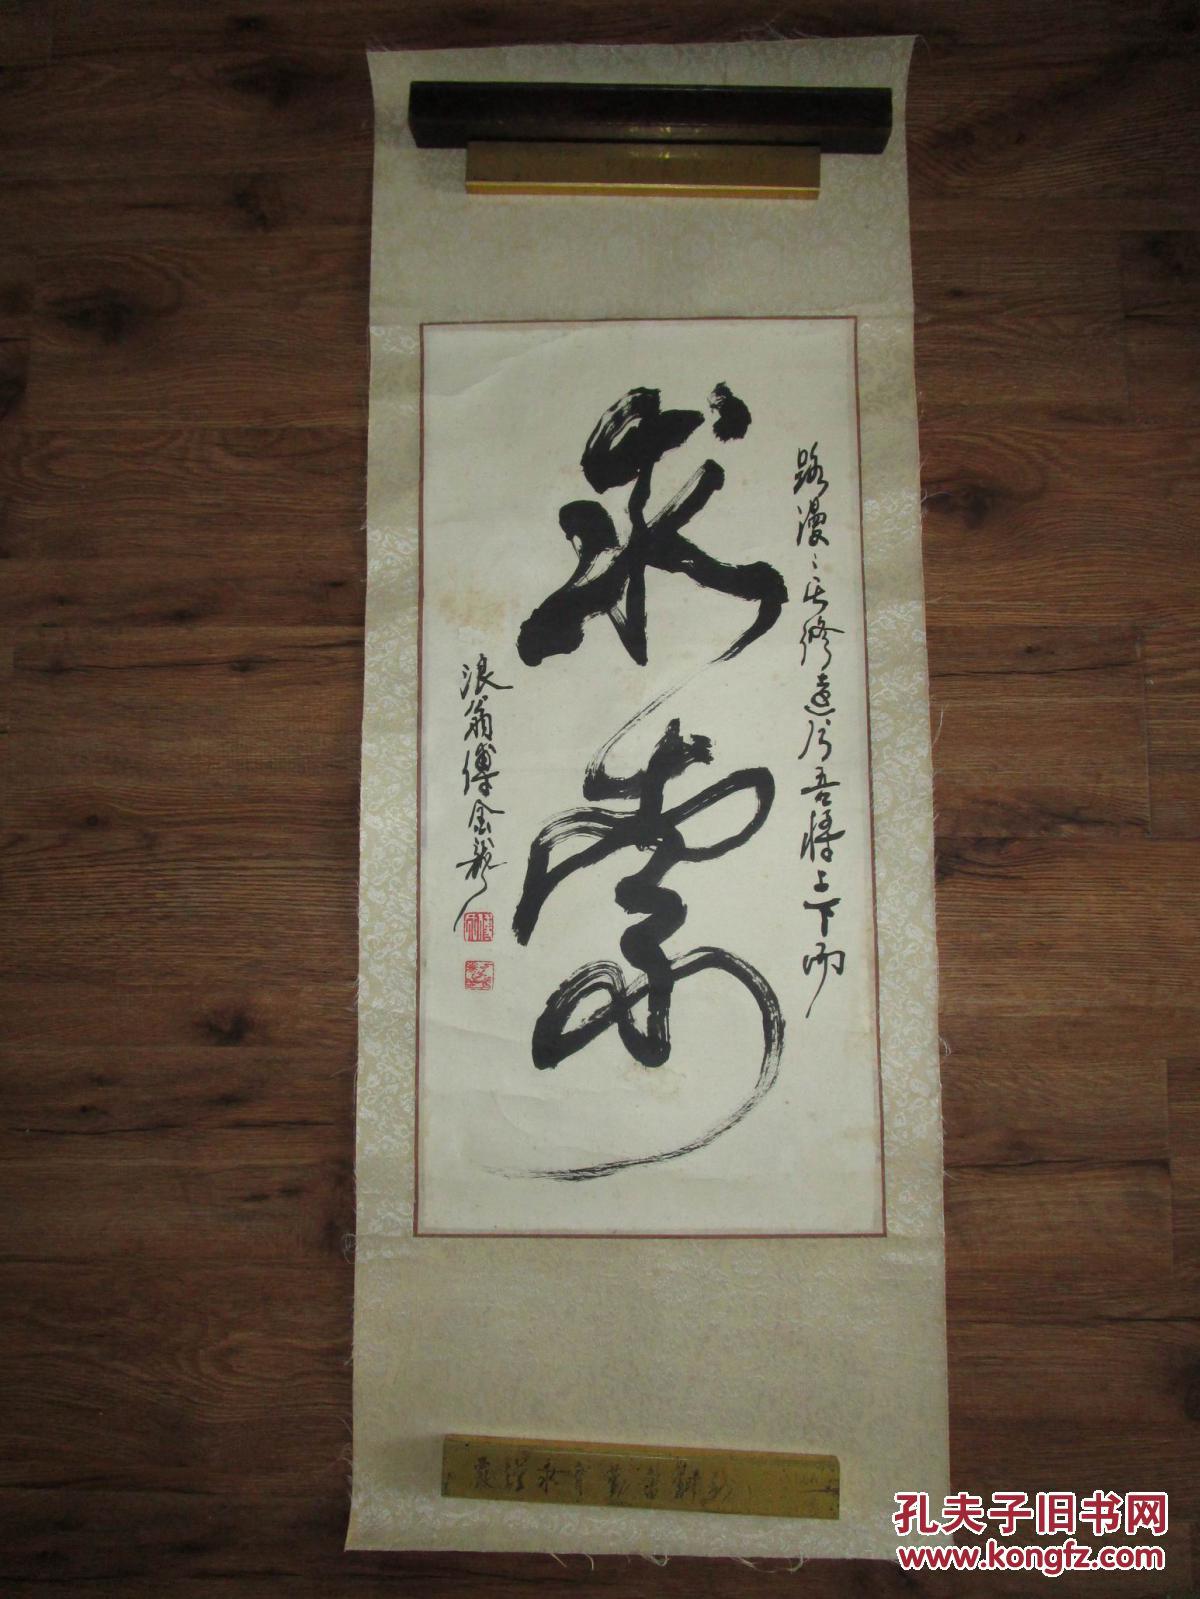 路漫〻其修遠兮吾將上下而
求索
浪翁傅金龍
孔夫子旧书网
www.kongfz.com